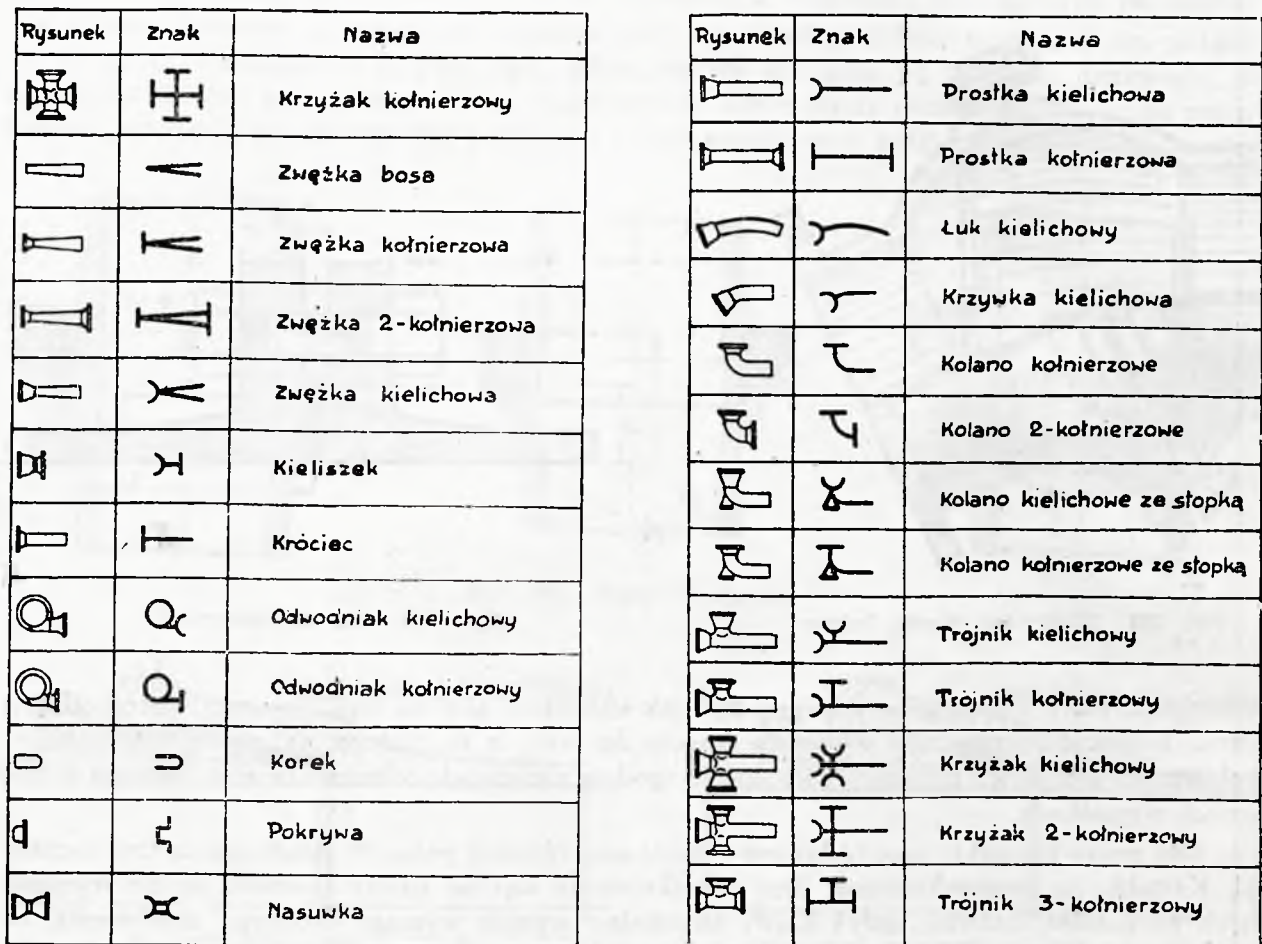 Rysunek Znak Nazwa
Krzyżak kołnierzowy
Zwężka bosa
Zwężka kołnierzowa
Zwężka 2-kołnierzowa
Zwężka kielichowa
Kieliszek
Króciec
Odwodniak kielichowy
Odwodniak kołnierzowy
Korek
Pokrywa
Nasuwka
Rysunek Znak Nazwa
Prostka kielichowa
Prostka kołnierzowa
Łuk kielichowy
Krzywka kielichowa
Kolano kołnierzowe
Kolano 2-kołnierzowe
Kolano kielichowe ze stopką
Kolano kołnierzowe ze stopką
Trójnik kielichowy
Trójnik kołnierzowy
Krzyżak kielichowy
Krzyżak 2-kołnierzowy
Trójnik 3-kołnierzowy